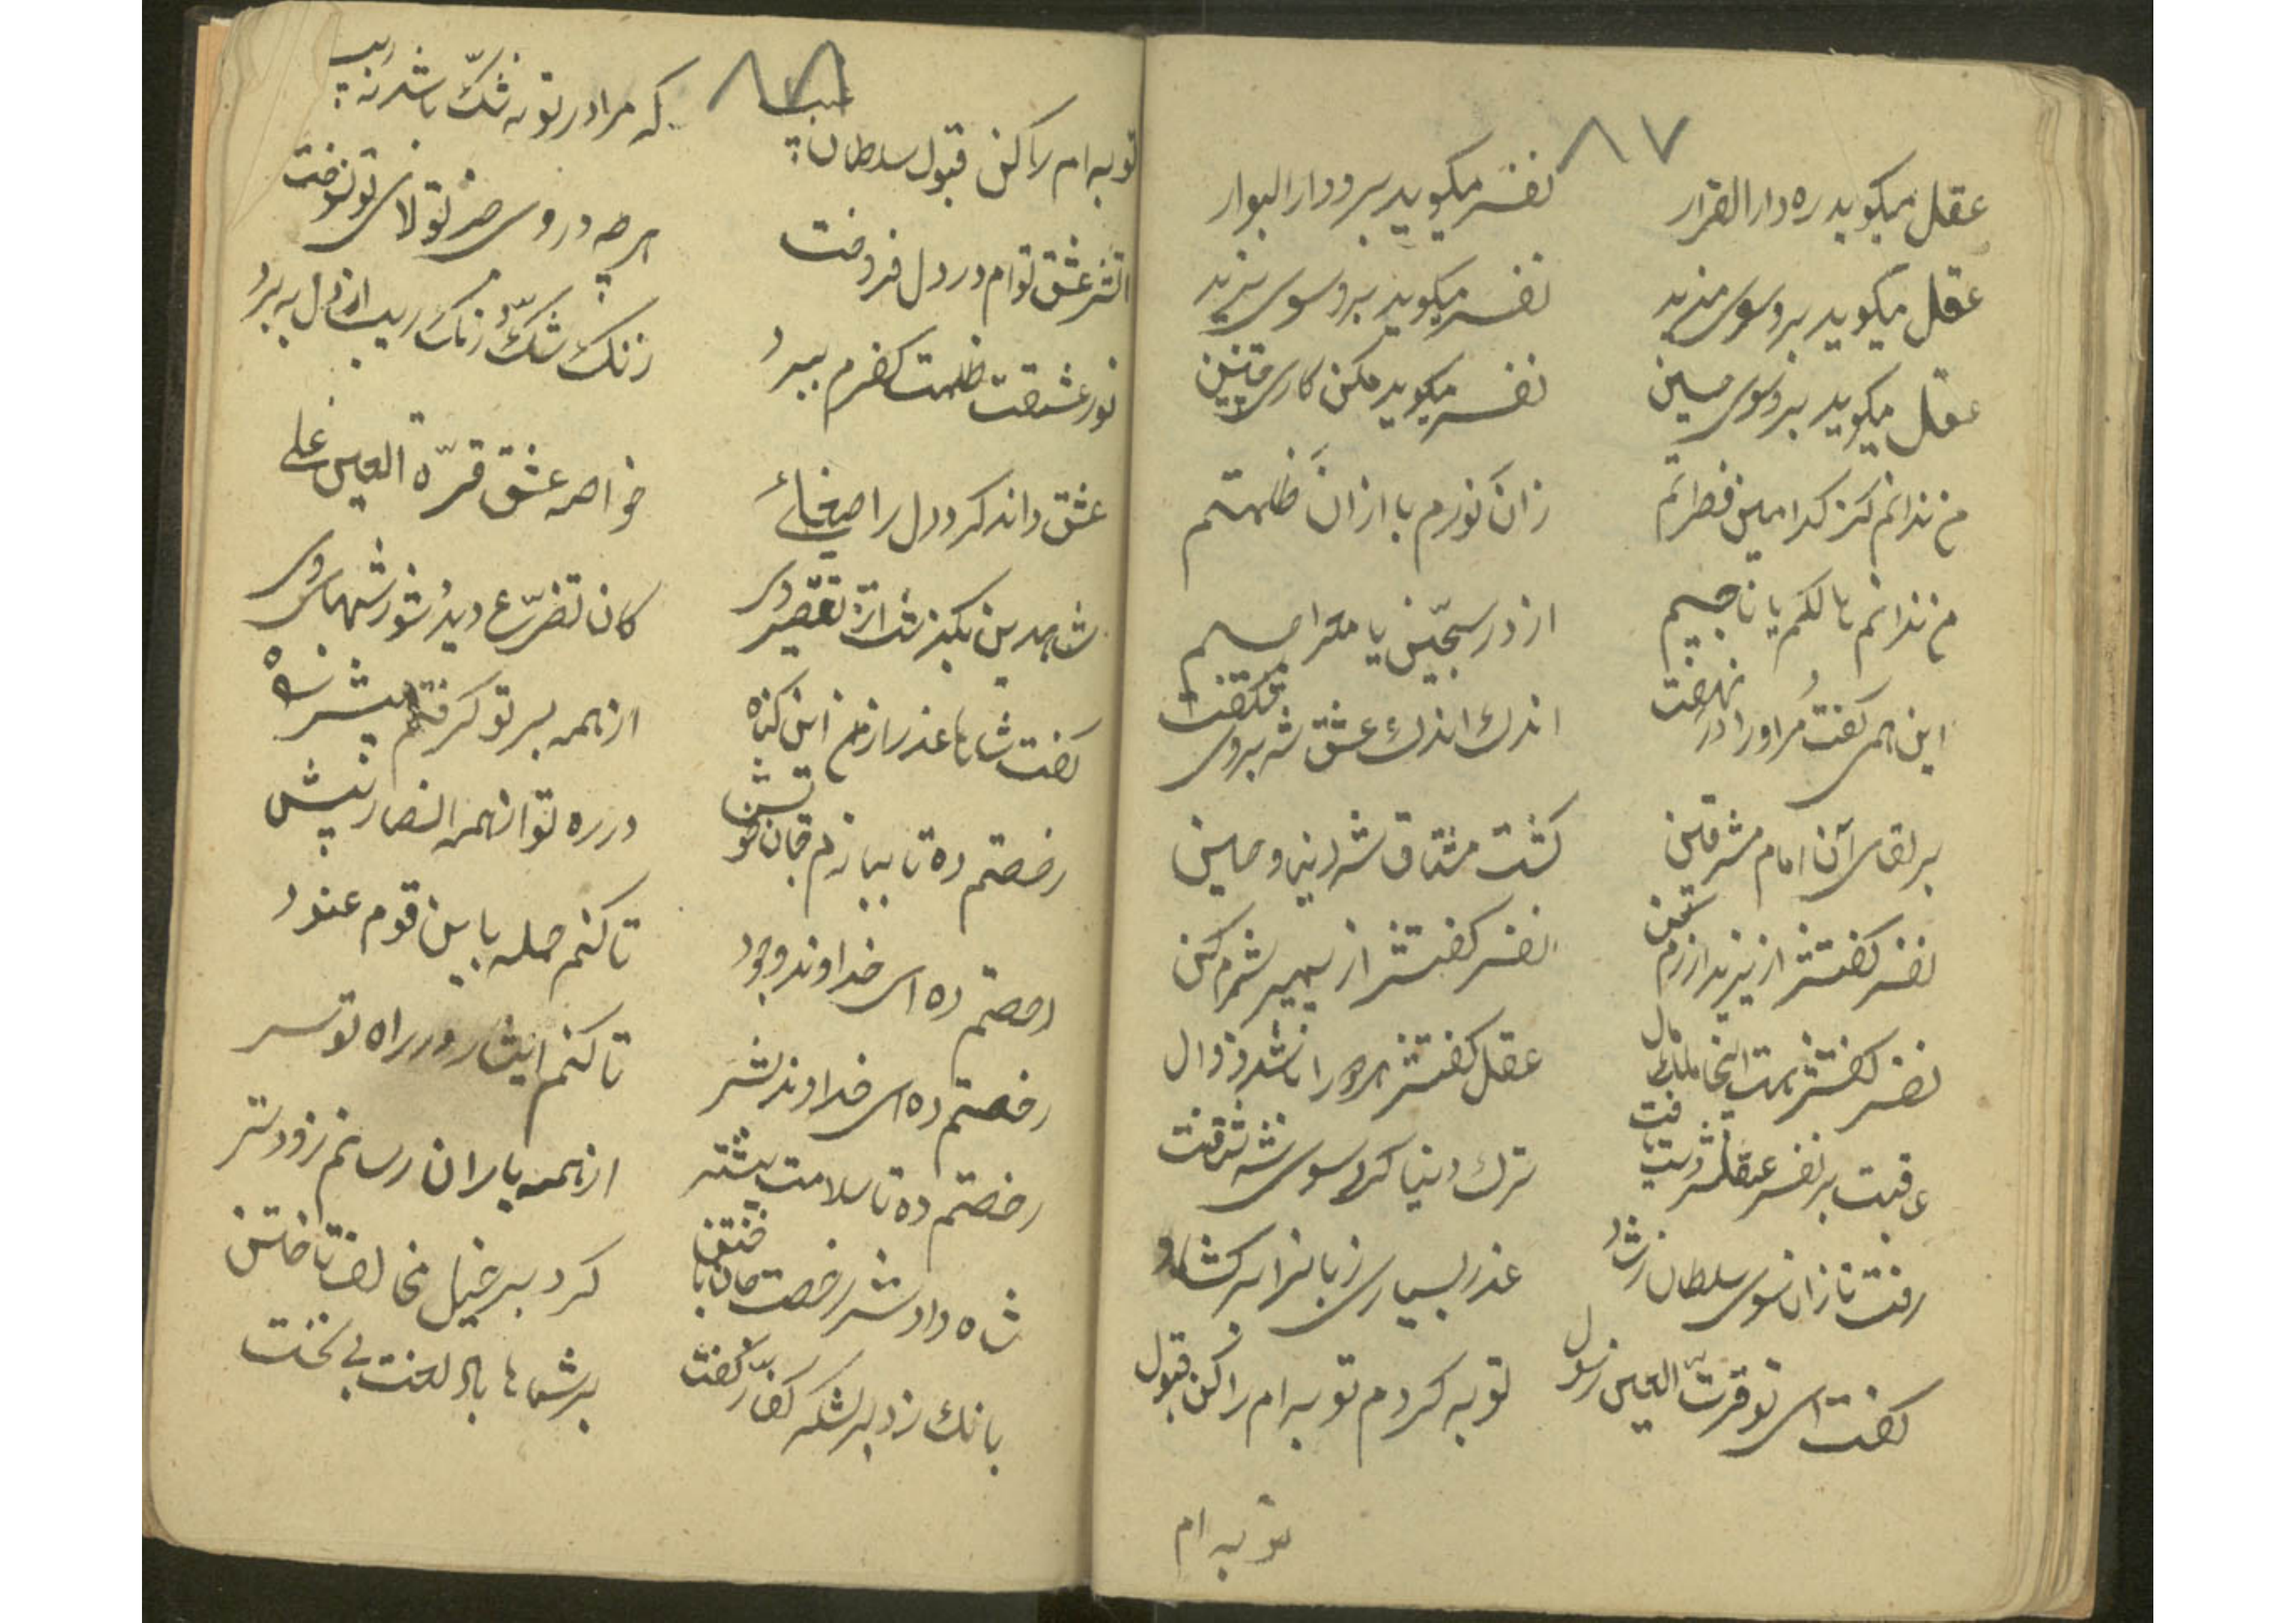 ۸۷
عقل میکوید ره دار القرار نفس میکوید برو دار البوار
عقل میکوید برو سوی مزید نفس میکوید برو سوی یزید
عقل میکوید برو سوی مبین نفس میکوید مکن کاری چنین
من ندانم کز کدامین فطرتم زان نورم یا از ان ظلمتم
من ندانم هالکم یا ناجیم از در سجّین یا
این همی کفت مر اورا در نهفت اندك اندك عشق شه بروی
بر لقای آن امام مشرقین کشت مشتاق شه دین حسین
نفس کفتش از یزید ازرم نفس کفتش از پیمبر شرم کن
نفس کفتش هست اینجا ملك مال عقل کفتش مر ورا باشد زوال
عاقبت بر نفس عقلش دست یافت ترك دنیا کرد سوی شه شتافت
رفت تازان سوی سلطان رشاد عذر بسیاری زبانرا بر کشاد
کفت ای تو قرّت العین رسول توبه کردم توبه ام را کن قبول
توبه ام
توبه ام را کن قبول سلطان که مرا در توبه شكّ باشد نه ریب
اتش عشق توام در دل فروخت هرچه در وی جز تولای تو سوخت
نور عشقت ظلمت کفرم ببرد زنك شكّ و زنك ریب از دل
عشق داند کرد دل را صیقلی خواصه عشق قرّة العین علی
شاه دین بکذشت از تقصیر وی کان تضرّع دید شور شهمای وی
کفت شاها عذر سازم این کناه از همه بر تو کرفتم پیش راه
رخصتم ده تا ببازم جان خویش در ره تو از همه انصار پیش
رخصتم ده ای خداوند وجود تا کنم حمله باین قوم عنود
رخصتم ده ای خداوند بشر تا کنم ایثار در راه تو سر
رخصتم ده تا سلامت بیشتر از همه یاران رسانم زودتر
شاه دادش رخصت جان باختن کرد بر خیل مخالف تاختن
بانك زد بر لشکر کفّار کفت بر شما باد لعنت بی